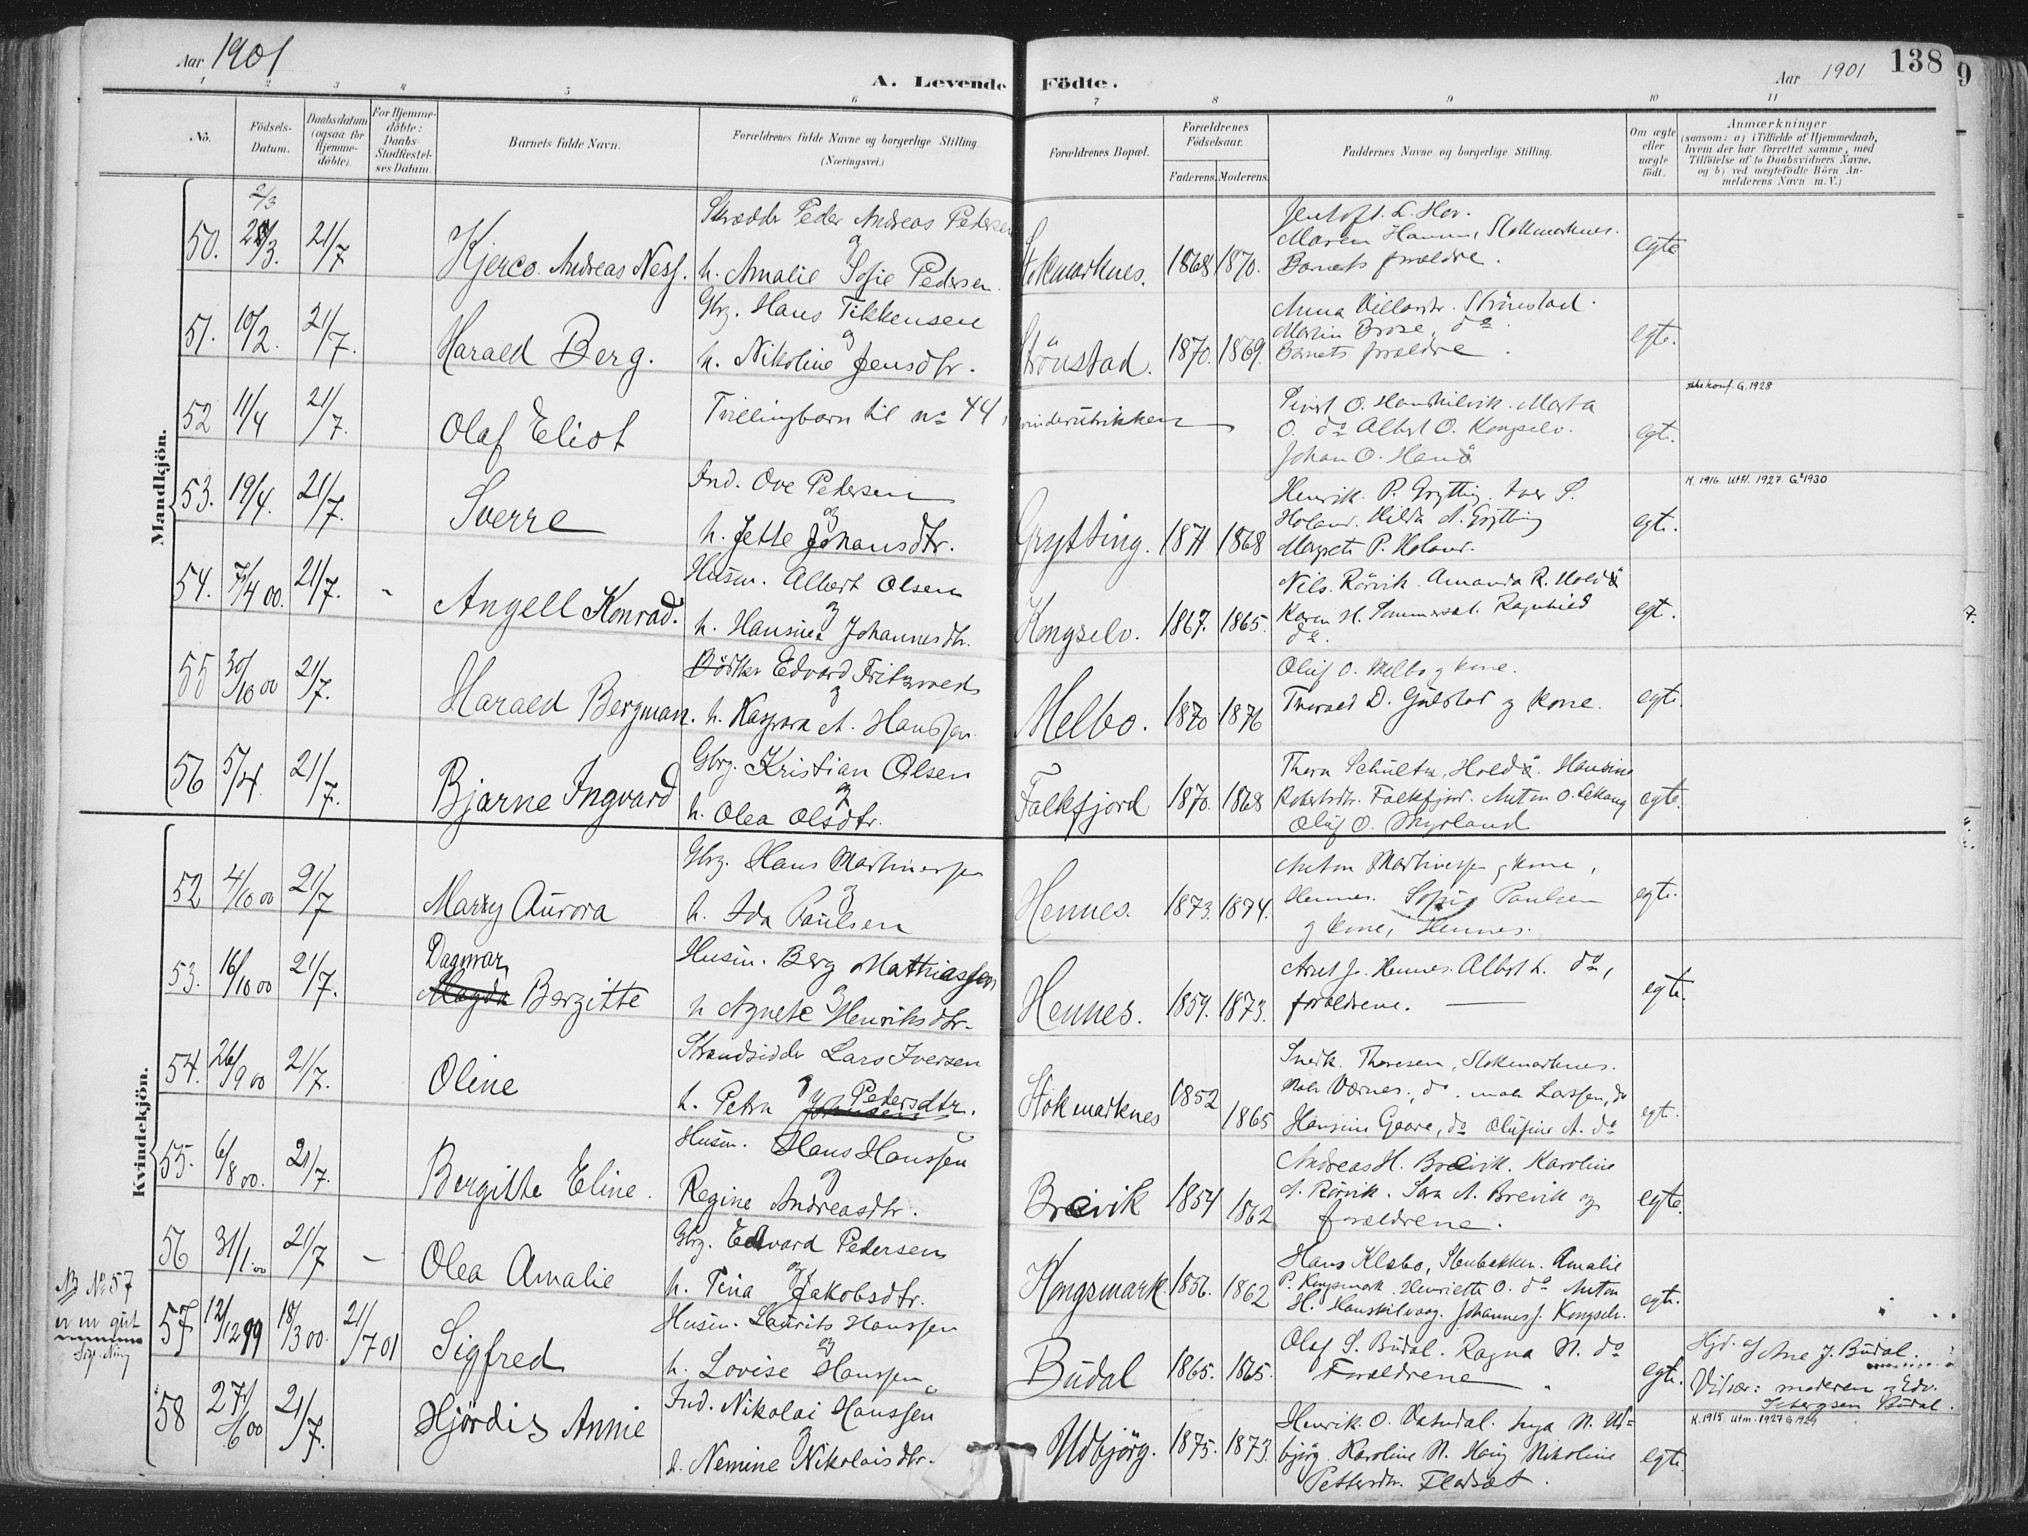 Aar 1901
A. Levende Födte.
Aar 1901
138
1 2 3 4 5 6 7 8 9 10 11
No.
Födsels-Datum.
Daabsdatum (ogsaa for Hjemmedöbte).
For Hjemmedöbte: Daabs-Stadfestelses Datum.
Barnets fulde Navn.
Forældrenes fulde Navne og borgerlige Stilling (Næringsvei.)
Forældrenes Bopæl.
Forældrenes Födselsaar.
Faderens. Moderens.
Faddernes Navne og borgerlige Stilling.
Om ægte eller uægte födt.
Anmærkninger
(saasom: a) i Tilfælde af Hjemmedaab, hvem der har forrettet samme, med Tilföielse af to Daabsvidners Navne, og b) ved uægtefödte Börn Anmelderens Navn m. V.)
Mandkjön.
2/3
50. 28/3. 21/7 Kjerco Andreas Ness.
Skrædder Peder Andreas Pedersen
og
h. Amalie Sofie Pedersen.
Stokmarknes. 1868 1870.
Jentoft L. Hov.
Maren Hanna, Stokmarknes.
Barnets forældre.
egte
51. 10/2. 21/7. Harald Berg.
Gbrg. Hans Tikkensen
og
h. Nikoline Jensdtr.
Strönstad. 1870. 1869.
Anna Strönstad.
Martin Brose, do
Barnets forældre.
egte.
52 11/4 21/7. Olaf Eliot
Tvillingbarn til no 44, kvinderubrikken
O. do Albert O. Kongselv.
Johan O.
egt.
G. 1928
53. 19/4. 21/7. Sverre
Ind. Ove Pedersen
og
h. Jette Johansdtr.
Grytting. 1871 1868
Henrik P. Grytting.
Hilda A. Grytting
Margrete P.
egt.
K. 1916. Utfl. 1927. G. 1930
54. 7/4 00. 21/7. - Angell Konrad.
Husm. Albert Olsen
og
h. Hansine Johannesdtr.
Kongselv. 1867. 1865.
Nils Rörvik. Amanda R. Holdö
Karen H. Sommerset. Ragnhild
do.
egt.
55 30/10 00 21/7. Harald Bergman.
Bödker Edvard Fritzvold
og
h. Kaspara A. Hanssen.
Melbo. 1870 1876
Oluf O. Melbo og kone.
Thorvald D. Gulstad og kone.
egte.
56 5/4. 21/7. Bjarne Ingvard
Gbrg. Kristian Olsen
og
h. Olea Olsdtr.
Falkfjord 1870. 1868
Thora Schultz, Holdö. Hansine
Robertsdtr. Falkfjord. Anton O. Lekang
Oluf O. Myrland
egte.
Kvindekjön.
52 4/10 00 21/7 Marry Aurora
Gbrg. Hans Martinussen
og
h. Ida Paulsen
Hennes. 1873. 1874.
Anton Martinussen og kone,
Hennes. Sofus Paulsen
og kone, Hennes.
egte.
53. 16/10 00 21/7. Dagmar
Magda Bergitte
Husm. Berg Mathiassen
og
h Agnete Henriksdtr.
Hennes. 1859. 1873.
Arnt J. Hennes. Albert L. do,
forældrene.
egte.
54. 26/9 00 21/7. Oline
Strandsidder Lars Iversen
og Petersdtr.
h. Petra Johnsen
Stokmarknes 1852 1865
Snedk. Thoresen, Stokmarknes.
Værnes, do. Larssen, do
Hansine Gaare, do Olufine A. do
egt.
55. 6/8 00. 21/7. Bergitte Eline.
Husm. Hans Hanssen
og
Regine Andreasdtr.
Breivik 1854 1862
Andreas H. Breivik. Karoline
A. Rörvik. Sara A. Breivik og
forældrene.
egte.
56 31/1.00 21/7 - Olea Amalie
Gbrg. Edvard Pedersen
og
h. Tina Jakobsdtr.
Kongsmark. 1856. 1862
Hans Klabo, Stenbakken. Amalie
P. Kongsmark. Henriette O. do Anton
H. Hanskilvaag. Johannes J. Kongselv.
egte.
NB No 57
er en gut
57 12/12 99 18/3 00. 21/7 01 Sigfred
Husm. Laurits Hanssen
og
h. Lovise Hanssen
Budal 1865. 1865.
Olaf S. Budal. Ragna N. do
Forældrene
egt.
Hjd. af Ane J. Budal.
Vidner: moderen og Edv.
Sebergsen Budal.
58 27/6 00 21/7. Hjördis Annie
Ind. Nikolai Hanssen
og
h. Nemine Nikolaisdtr.
Udbjörg. 1875. 1873.
Henrik O. Vatndal. Inga N. Ud-
björg. Karoline N. Haug Nikoline
Pettersdtr. Fladset.
egte.
K. 1915 Utm. 1927 G 1929